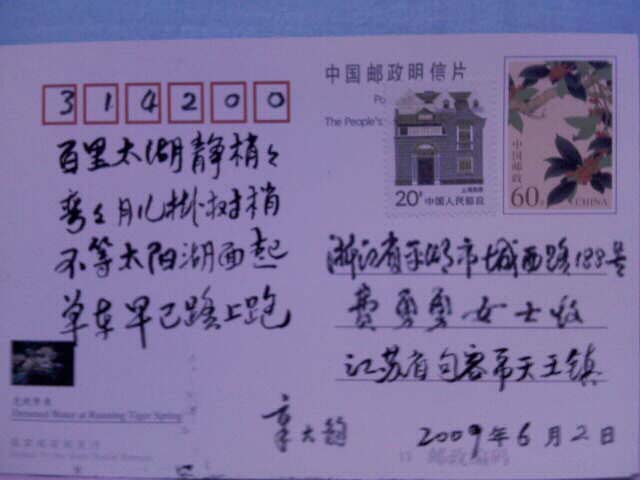 314200
中国邮政明信片
Po
The People's
20分 中国人民邮政
中国邮政
60分
CHINA
百里太湖静梢々
弯々月儿挂树梢
不等太阳湖面起
单车早已路上跑
浙江省平湖市城西路188号
费勇勇女士收
江苏省句容市天王镇
章大
2009年6月2日
邮政编码